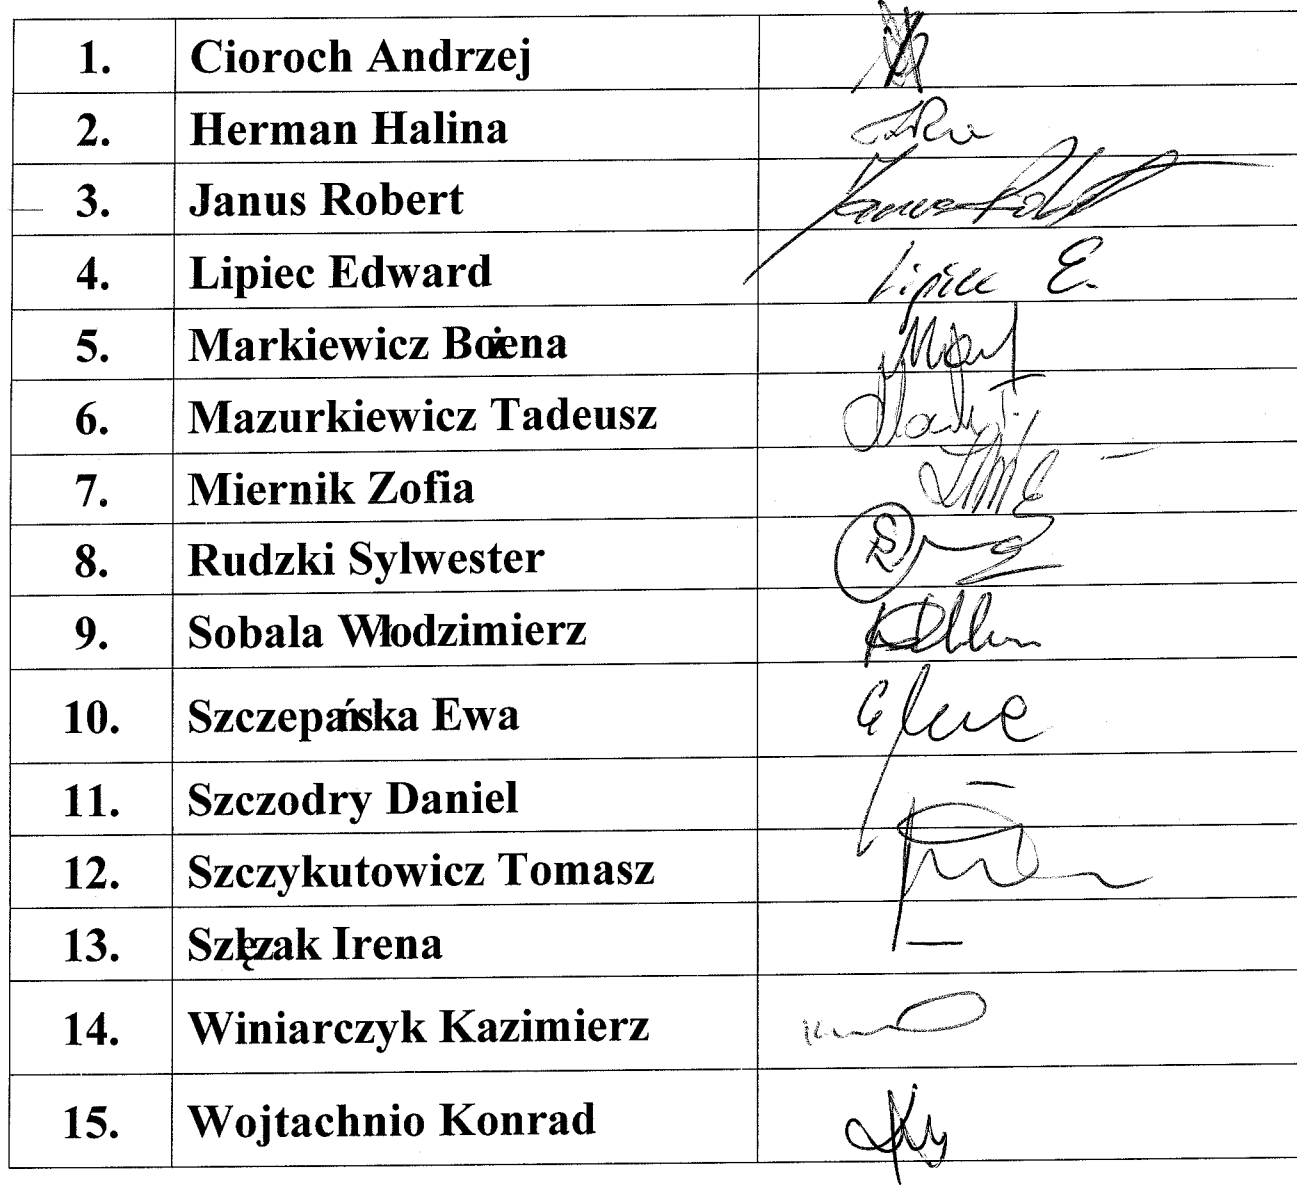 1. Cioroch Andrzej
2. Herman Halina
3. Janus Robert Janus Robert
4. Lipiec Edward Lipiec E.
5. Markiewicz Bożena
6. Mazurkiewicz Tadeusz
7. Miernik Zofia
8. Rudzki Sylwester
9. Sobala Włodzimierz
10. Szczepańska Ewa
11. Szczodry Daniel –
12. Szczykutowicz Tomasz
13. Szlęzak Irena –
14. Winiarczyk Kazimierz
15. Wojtachnio Konrad